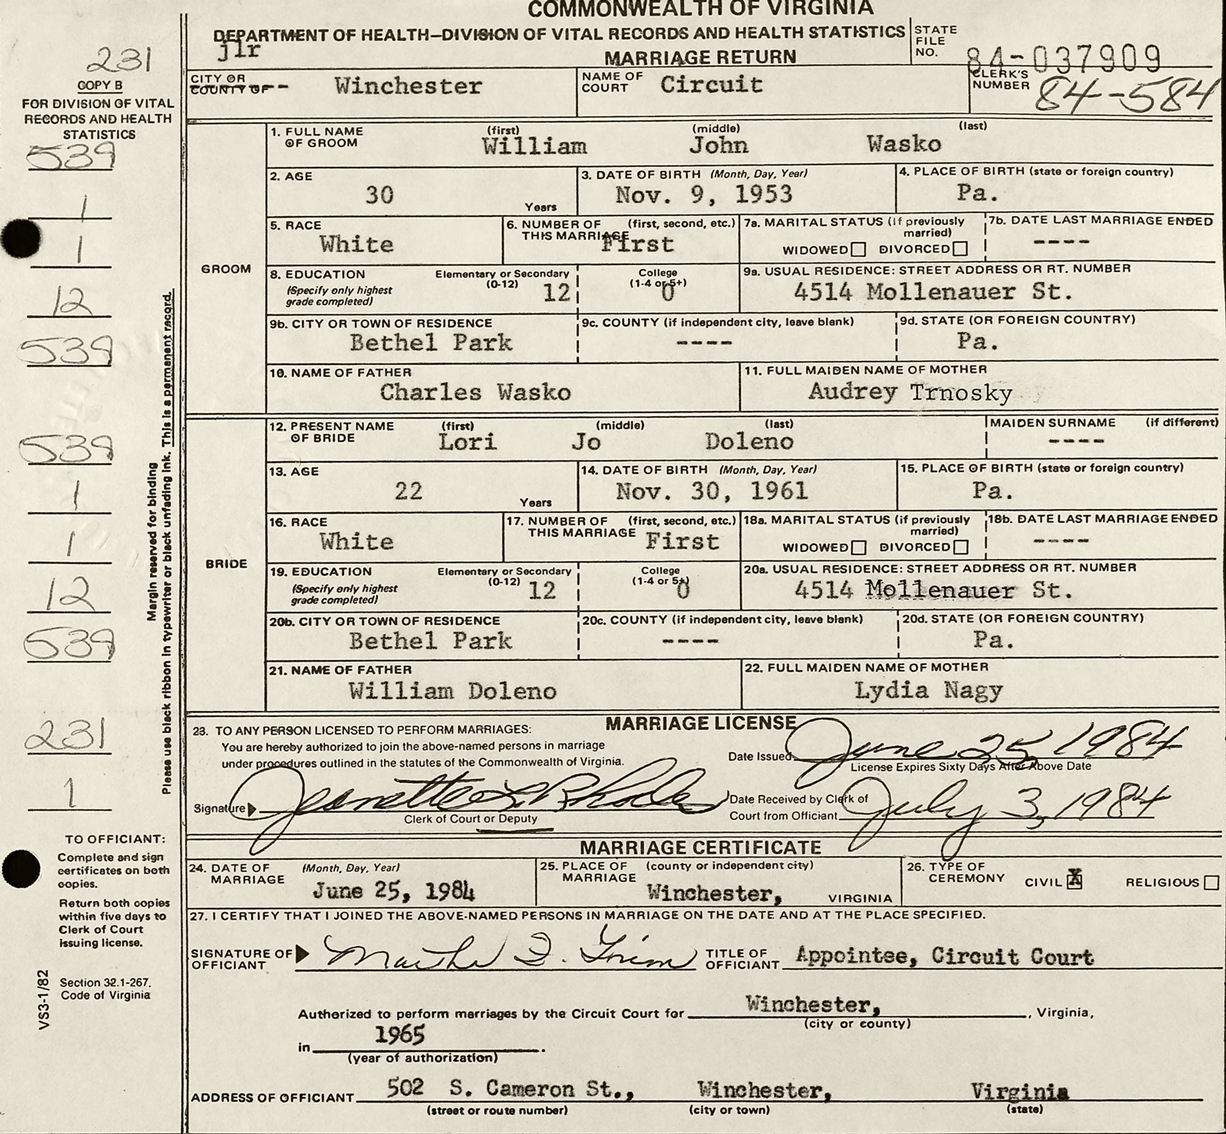 COMMONWEALTH OF VIRGINIA
DEPARTMENT OF HEALTH—DIVISION OF VITAL RECORDS AND HEALTH STATISTICS
jlr
MARRIAGE RETURN
STATE FILE NO. 84-037909
231
COPY B
FOR DIVISION OF VITAL
RECORDS AND HEALTH
STATISTICS
CITY OR COUNTY OF Winchester NAME OF COURT Circuit CLERK'S NUMBER 84-584
539
1
1
12
539
539
1
1
12
539
231
1
Margin reserved for binding
Please use black ribbon in typewriter or black unfading ink. This is a permanent record.
GROOM
1. FULL NAME OF GROOM (first) William (middle) John (last) Wasko
2. AGE 30 Years 3. DATE OF BIRTH (Month, Day, Year) Nov. 9, 1953 4. PLACE OF BIRTH (state or foreign country) Pa.
5. RACE White 6. NUMBER OF THIS MARRIAGE (first, second, etc.) First 7a. MARITAL STATUS (if previously married) WIDOWED DIVORCED 7b. DATE LAST MARRIAGE ENDED ----
8. EDUCATION (Specify only highest grade completed) Elementary or Secondary (0-12) 12 College (1-4 or 5+) 0 9a. USUAL RESIDENCE: STREET ADDRESS OR RT. NUMBER 4514 Mollenauer St.
9b. CITY OR TOWN OF RESIDENCE Bethel Park 9c. COUNTY (if independent city, leave blank) ---- 9d. STATE (OR FOREIGN COUNTRY) Pa.
10. NAME OF FATHER Charles Wasko 11. FULL MAIDEN NAME OF MOTHER Audrey Trnosky
BRIDE
12. PRESENT NAME OF BRIDE (first) Lori (middle) Jo (last) Doleno MAIDEN SURNAME (if different) ----
13. AGE 22 Years 14. DATE OF BIRTH (Month, Day, Year) Nov. 30, 1961 15. PLACE OF BIRTH (state or foreign country) Pa.
16. RACE White 17. NUMBER OF THIS MARRIAGE (first, second, etc.) First 18a. MARITAL STATUS (if previously married) WIDOWED DIVORCED 18b. DATE LAST MARRIAGE ENDED ----
19. EDUCATION (Specify only highest grade completed) Elementary or Secondary (0-12) 12 College (1-4 or 5+) 0 20a. USUAL RESIDENCE: STREET ADDRESS OR RT. NUMBER 4514 Mollenauer St.
20b. CITY OR TOWN OF RESIDENCE Bethel Park 20c. COUNTY (if independent city, leave blank) ---- 20d. STATE (OR FOREIGN COUNTRY) Pa.
21. NAME OF FATHER William Doleno 22. FULL MAIDEN NAME OF MOTHER Lydia Nagy
MARRIAGE LICENSE
23. TO ANY PERSON LICENSED TO PERFORM MARRIAGES:
You are hereby authorized to join the above-named persons in marriage
under procedures outlined in the statutes of the Commonwealth of Virginia.
Date Issued June 25, 1984
License Expires Sixty Days After Above Date
Signature Jeanette L. Rhodes
Clerk of Court or Deputy
Date Received by Clerk of Court from Officiant July 3, 1984
MARRIAGE CERTIFICATE
24. DATE OF MARRIAGE (Month, Day, Year) June 25, 1984 25. PLACE OF MARRIAGE (county or independent city) Winchester, VIRGINIA 26. TYPE OF CEREMONY CIVIL X RELIGIOUS
27. I CERTIFY THAT I JOINED THE ABOVE-NAMED PERSONS IN MARRIAGE ON THE DATE AND AT THE PLACE SPECIFIED.
SIGNATURE OF OFFICIANT Martha TITLE OF OFFICIANT Appointee, Circuit Court
Authorized to perform marriages by the Circuit Court for Winchester, , Virginia,
(city or county)
in 1965 .
(year of authorization)
ADDRESS OF OFFICIANT 502 S. Cameron St., Winchester, Virginia
(street or route number) (city or town) (state)
TO OFFICIANT:
Complete and sign
certificates on both
copies.
Return both copies
within five days to
Clerk of Court
issuing license.
Section 32.1-267,
Code of Virginia
VS3-1/82